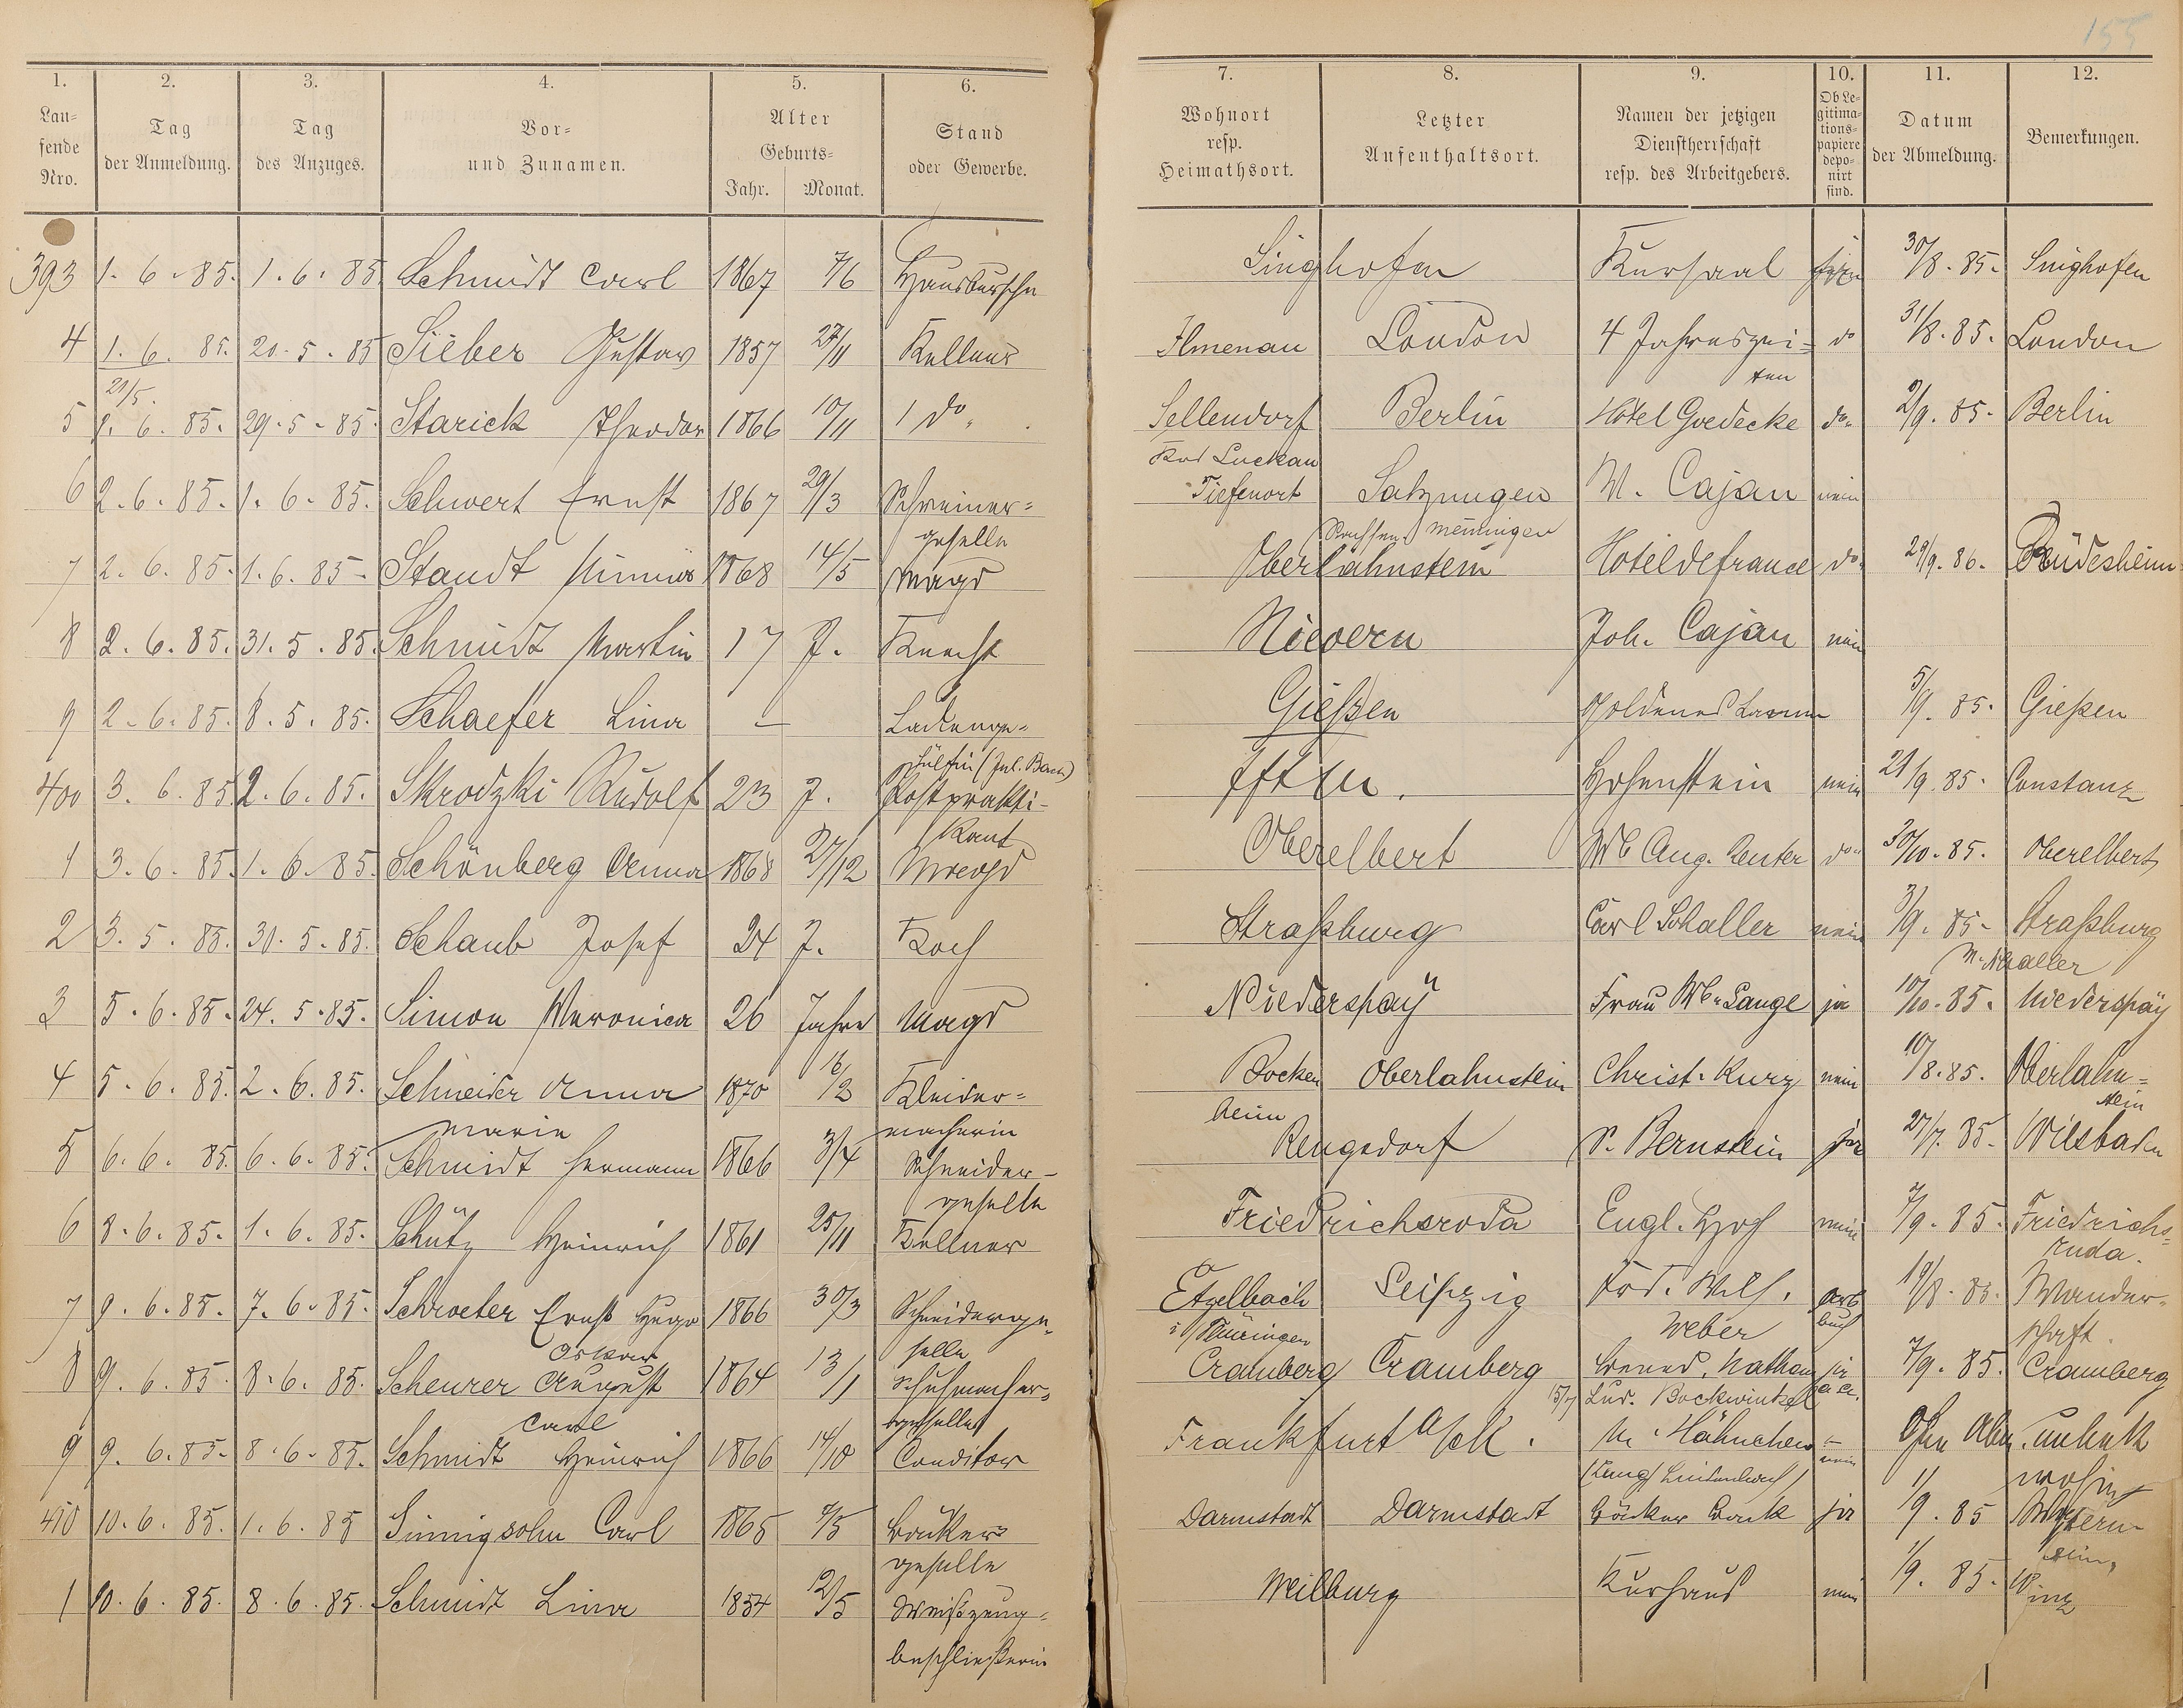 155
1. 2. 3. 4. 5. 6. 7. 8. 9. 10. 11. 12.
Lau-
fende
Nro.
Tag
der Anmeldung.
Tag
des Anzuges.
Vor-
und Zunamen.
Alter
Geburts-
Jahr. Monat.
Stand
oder Gewerbe.
Wohnort
resp.
Heimathsort.
Letzter
Aufenthaltsort.
Namen der jetzigen
Dienstherrschaft
resp. des Arbeitgebers.
Ob Le-
gitima-
tions-
papiere
depo-
nirt
sind.
Datum
der Abmeldung.
Bemerkungen.
393 1. 6. 85. 1. 6. 85 Schmidt Carl 1867 7/6 Hausbursche Singhofen Kursaal 30/8. 85. Singhofen
4 1. 6. 85. 20. 5. 85 Sieber Gustav 1857 27/11 Kellner Ilmenau London 4 Jahreszei- do 31/8. 85. London
21/5. ten
5 1. 6. 85. 29. 5. 85. Starick Theodor 1866 10/11 do. Sellendorf Berlin Hôtel Goedecke do. 2/9. 85. Berlin
Luckau
6 2. 6. 85. 1. 6. 85. Schwert Ernst 1867 29/3 Schreiner- Tiefenort Salzungen W. Cajan nein
geselle Sachsen Meiningen
7 2. 6. 85. 1. 6. 85. Staudt Minna 1868 14/5 Magd Oberlahnstein Hotel de france do. 29/9. 86. Rüdesheim
8 2. 6. 85. 31. 5. 85. Schmidt Martin 17 J. Knecht Nievern Joh. Cajan nein
9 2. 6. 85. 8. 5. 85. Schaefer Lina — Ladenge- Gießen Goldenes Lamm 5/9. 85. Gießen
hülfin (Jul. Bach)
400 3. 6. 85 2. 6. 85. Skrodzki Rudolf 23 J. Postprakti- Hohenstein nein 21/9. 85. Constanz
kant
1 3. 6. 85. 1. 6. 85. Schönberg Anna 1868 27/12 Magd Oberelbert Wb Aug. Reuter do. 30/10. 85. Oberelbert
2 3. 5. 85. 30. 5. 85. Schaub Josef 24 J. Koch Straßburg Carl Schaller nein 3/9. 85. Straßburg
3 5. 6. 85. 24. 5. 85. Simon Veronica 26 Jahre Magd Niederspay Frau Wb. Lange ja 10/10. 85. Niederspay
4 5. 6. 85. 2. 6. 85. Schneider Anna 1870 16/2 Kleider- Bocken Oberlahnstein Christ. Kurz nein 10/8. 85. Oberlahn-
Marie macherin heim stein
5 6. 6. 85. 6. 6. 85. Schmidt Hermann 1866 3/4 Schneider- Rengsdorf S. Bernstein ja 27/7. 85. Wiesbaden
geselle
6 8. 6. 85. 1. 6. 85. Schütz Heinrich 1861 25/11 Kellner Friedrichsroda Engl. Hof nein 7/9. 85. Friedrichs-
roda.
7 9. 6. 85. 7. 6. 85. Schroeter Ernst Hugo 1866 30/3 Schneiderge- Etzelbach Leipzig Wilh. Arb 19/8. 85. Wander-
Oskar selle i/Thüringen Weber buch schaft.
8 9. 6. 85. 8. 6. 85. Scheurer August 1864 13/1 Schuhmacher- Cramberg Cramberg Nathan ja 7/9. 85. Cramberg
Carl geselle 15/7 Lud. Bockwinkel
9 9. 6. 85. 8. 6. 85. Schmidt Heinrich 1866 14/10 Conditor Frankfurt a/M. M. Hähnchen — Ohn Abm. unbek
nein wohin
410 10. 6. 85. 1. 6. 85 Sinnigsohn Carl 1865 7/5 Bäcker Darmstadt Darmstadt Bäcker Bock ja 1/9. 85
geselle
1 10. 6. 85. 8. 6. 85. Schmidt Lina 1854 12/5 Weißzeug- Weilburg Kurhaus nein 1/9. 85.
beschließerin